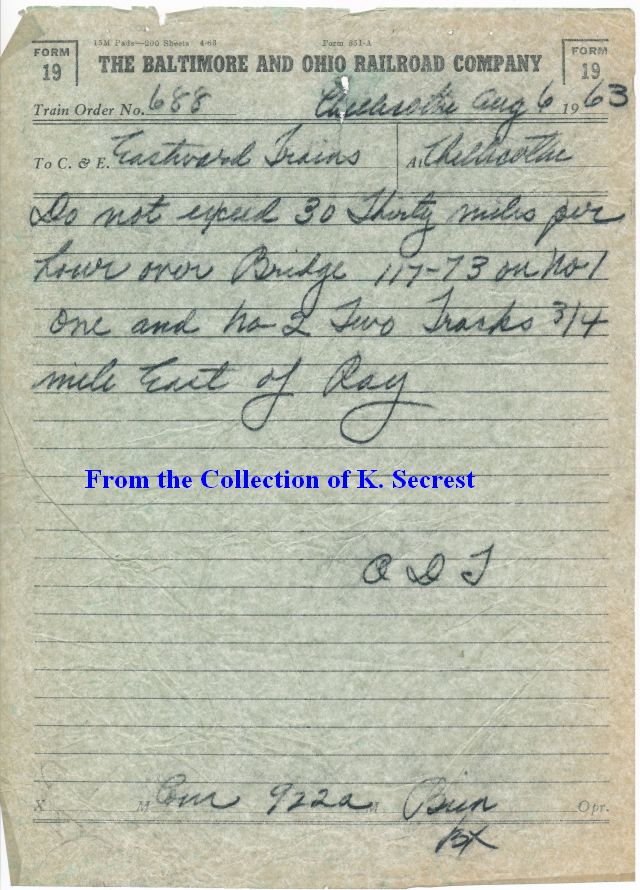 15M Pads—200 Sheets 4-63 Form 551-A
FORM 19 THE BALTIMORE AND OHIO RAILROAD COMPANY FORM 19
Train Order No. 688 Chillicothe Aug 6 1963
To C. & E. Eastward Trains At Chillicothe
Do not exceed 30 Thirty miles per
hour over Bridge 117-73 on No 1
One and No 2 Two Tracks 3/4
mile East of Ray
From the Collection of K. Secrest
X M Com 922a M Opr.